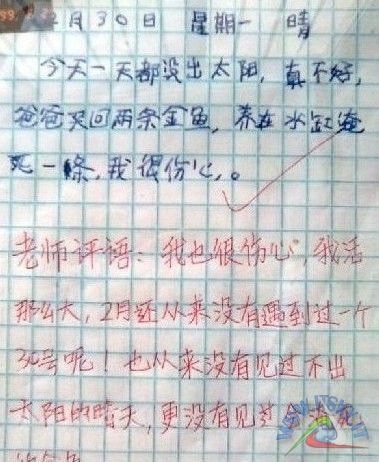 2月30日 星期一 晴
今天一天都没出太阳,真不好,
爸爸买回两条金鱼,养在水缸淹
死一條,我很伤心,。
老师评语:我也很伤心,我活
那么大,2月还从来没有遇到过一个
30号呢!也从来没有见过不出
太阳的晴天,更没有见过会淹死
的金鱼